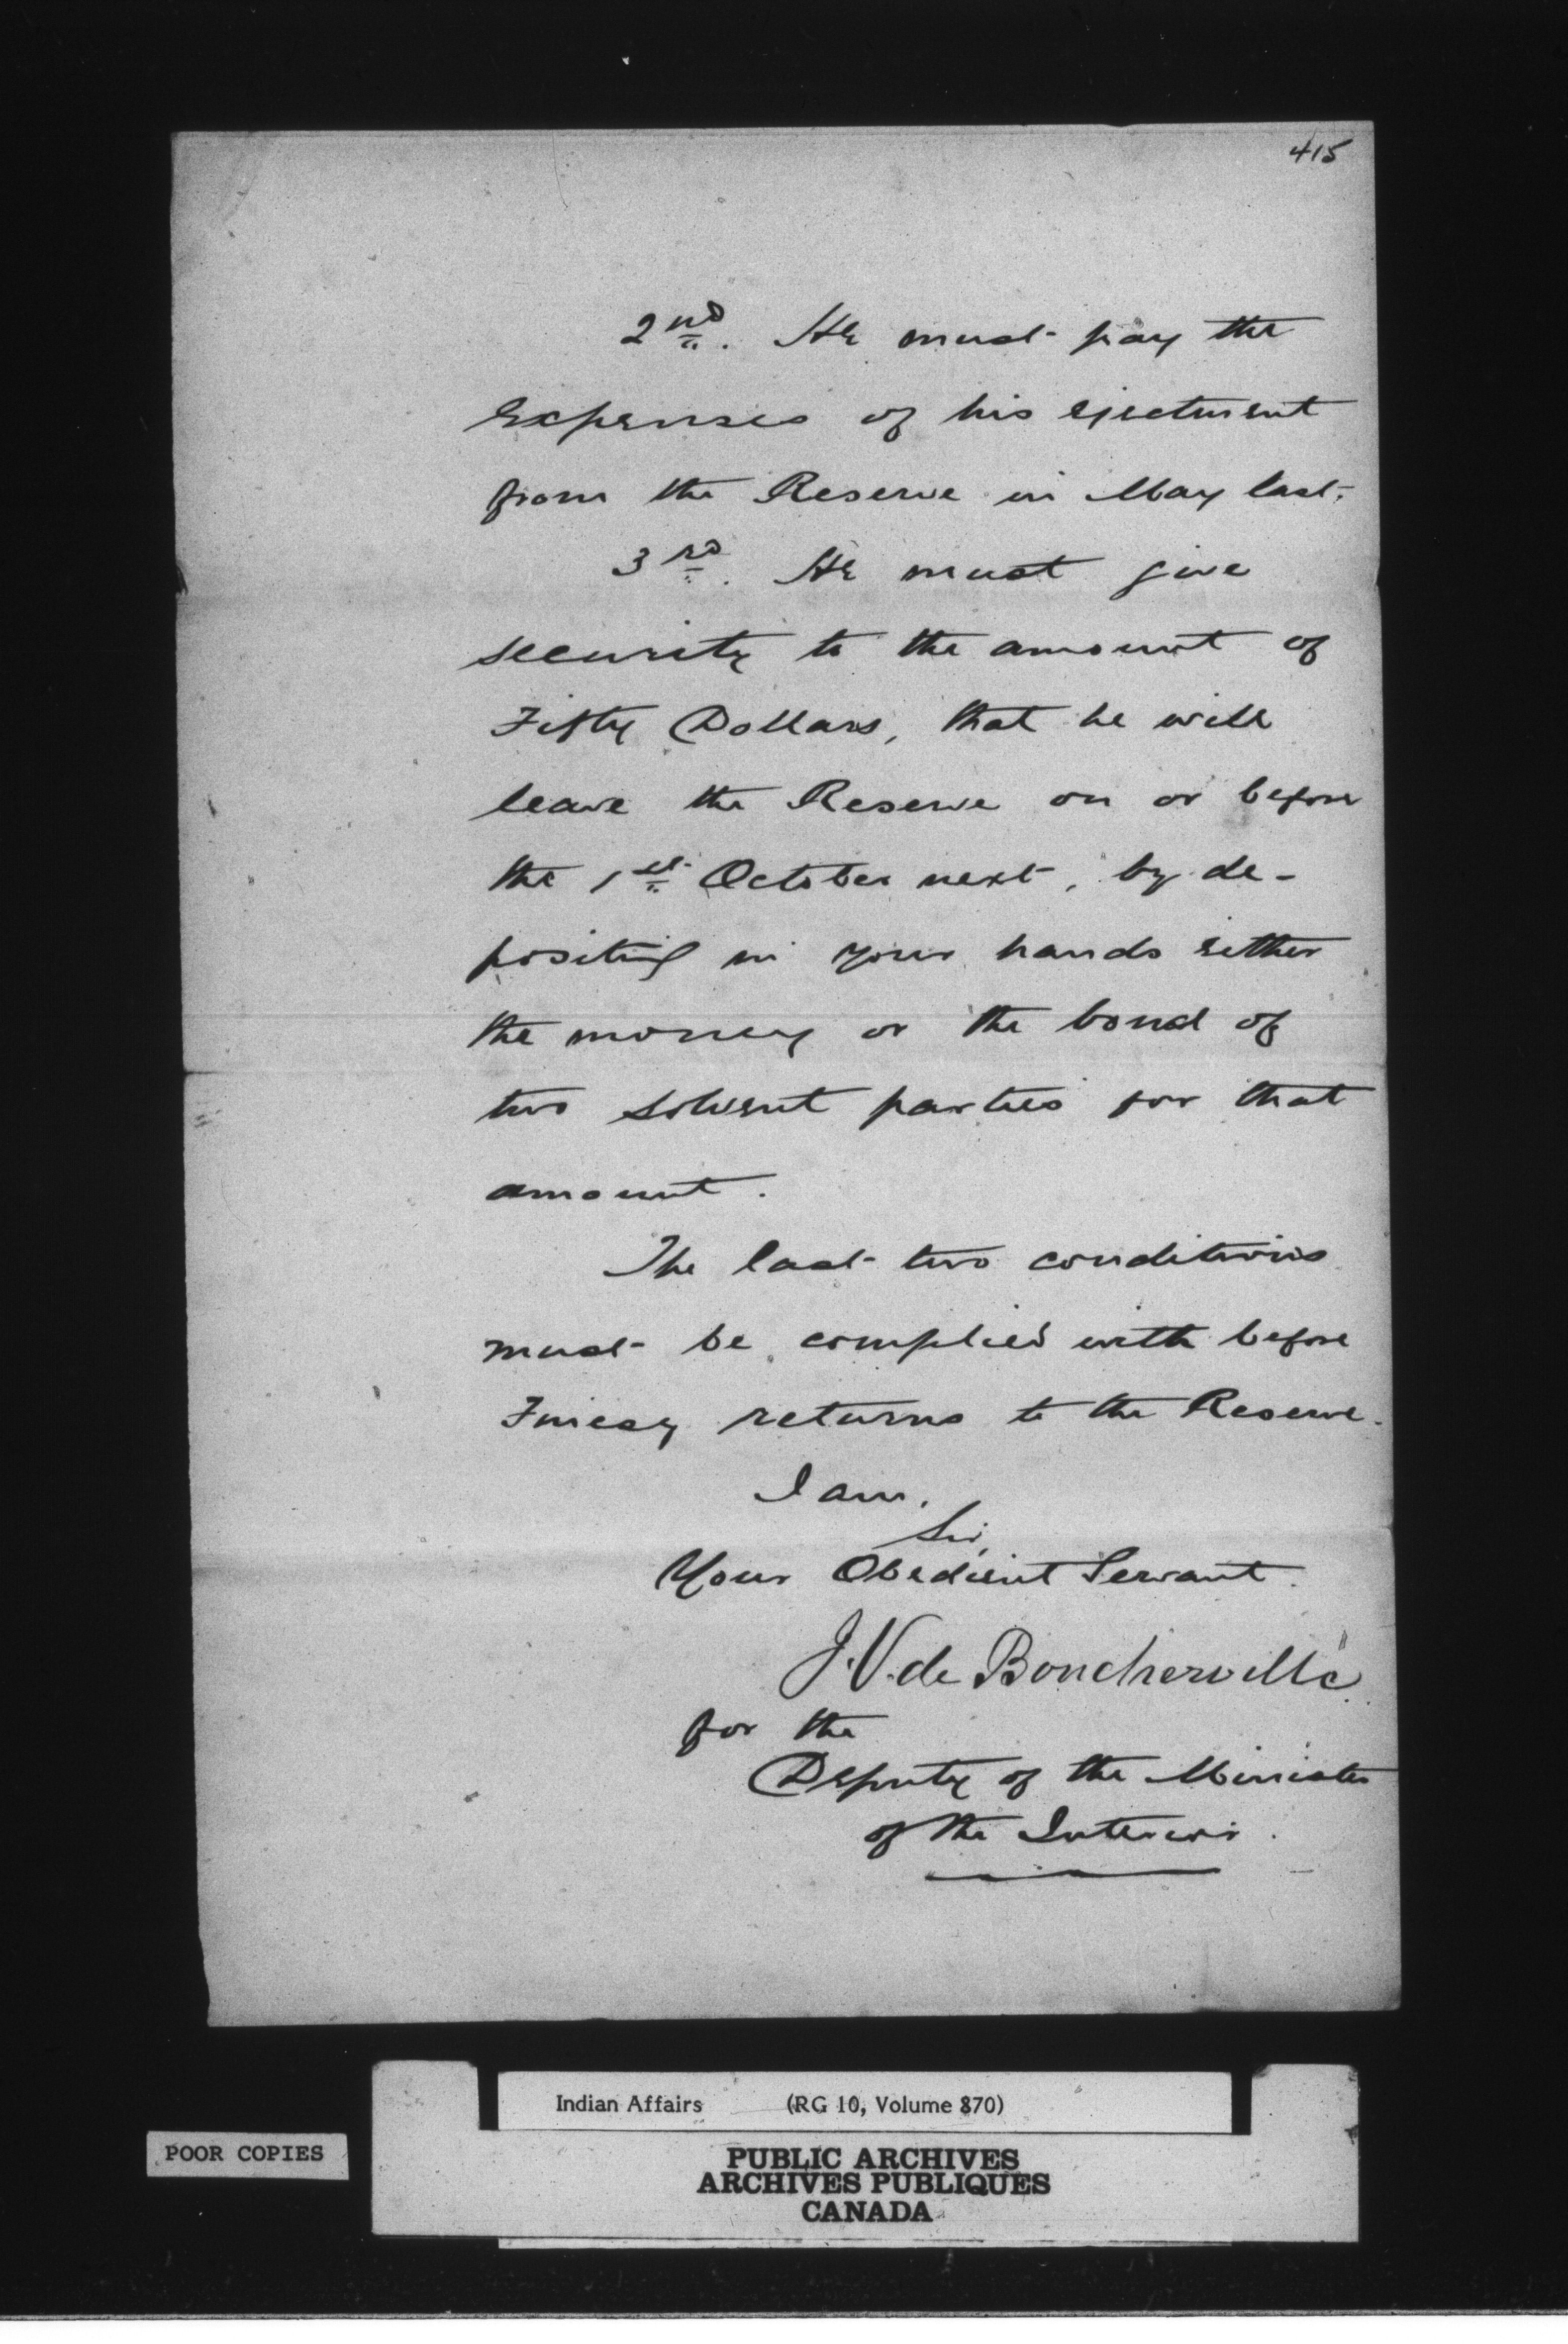 415
2nd. He must pay the
expenses of his ejectment
from the Reserve in May last.
3rd. He must give
security to the amount of
Fifty Dollars, that he will
leave the Reserve on or before
the 1st October next, by de-
positing in your hands either
the money or the bond of
two solvent parties for that
amount.
The last two conditions
must be complied with before
returns to the Reserve.
I am,
Sir,
Your Obedient Servant.
J. V. de Boucherville
for the
Deputy of the Minister
of the Interior.
Indian Affairs (RG 10, Volume 870)
POOR COPIES
PUBLIC ARCHIVES
ARCHIVES PUBLIQUES
CANADA